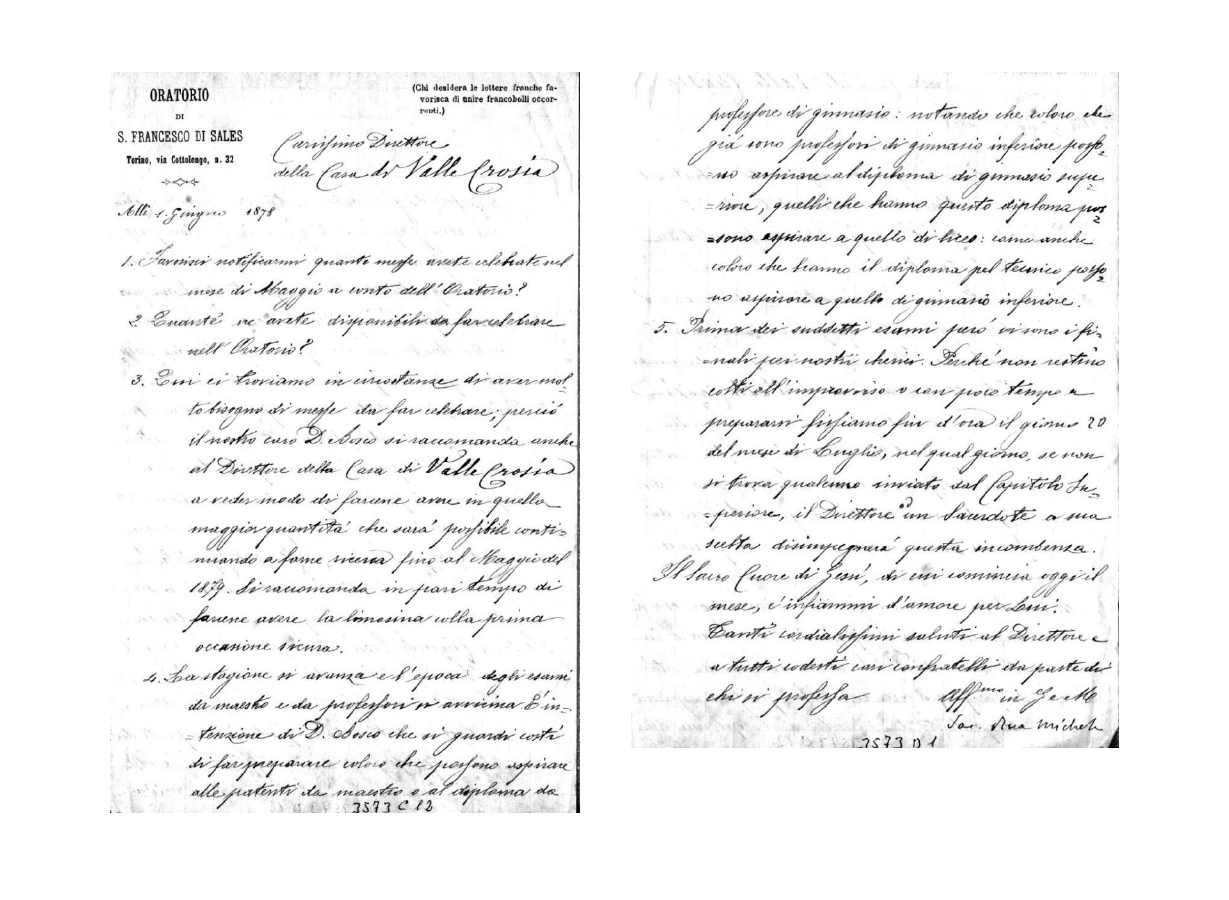 ORATORIO
DI
S. FRANCESCO DI SALES
Torino, via Cottolengo, n. 32
(Chi desidera le lettere franche fa-
vorisca di unire francobolli occor-
renti.)
Carissimo Direttore
della Casa di Valle Crosia
Alli 1 Giugno 1878
1. Favorisci notificarmi quante messe avete celebrate nel
mese di Maggio a conto dell' Oratorio?
2. Quante ne avete disponibili da far celebrare
nell' Oratorio?
3. Qui ci troviamo in circostanze di aver mol-
to bisogno di messe da far celebrare; perciò
il nostro caro D. Bosco si raccomanda anche
al Direttore della Casa di Valle Crosia
a veder modo di farcene avere in quella
maggior quantità che sarà possibile conti-
nuando a farne ricerca fino al Maggio del
1879. Si raccomanda in pari tempo di
farcene avere la limosina colla prima
occasione sicura.
4. La stagione si avanza e l'epoca degli esami
da maestro e da professori si avvicina. È in-
=tenzione di D. Bosco che si guardi costì
di far preparare coloro che possono aspirare
alle patenti da maestro o al diploma da
3573 C 12
professore di ginnasio: notando che coloro che
già sono professori di ginnasio inferiore posso-
=no aspirare al diploma di ginnasio supe-
=riore, quelli che hanno questo diploma pos-
=sono aspirare a quello di liceo: come anche
coloro che hanno il diploma pel tecnico posso-
no aspirare a quello di ginnasio inferiore.
5. Prima dei suddetti esami però vi sono i fi-
=nali pei nostri chierici. Perché non restino
colti all'improvviso o con poco tempo a
prepararsi fissiamo fin d'ora il giorno 20
del mese di Luglio, nel qual giorno, se non
si trova qualcuno inviato dal Capitolo Su-
=periore, il Direttore o un Sacerdote a sua
scelta disimpegnerà questa incombenza.
Il Sacro Cuore di Gesù, di cui comincia oggi il
mese, c'infiammi d'amore per Lui.
Tanti cordialissimi saluti al Direttore e
a tutti codesti cari confratelli da parte di
chi si professa
Aff.mo in G e M
Sac. Rua Michele
3573 D 1